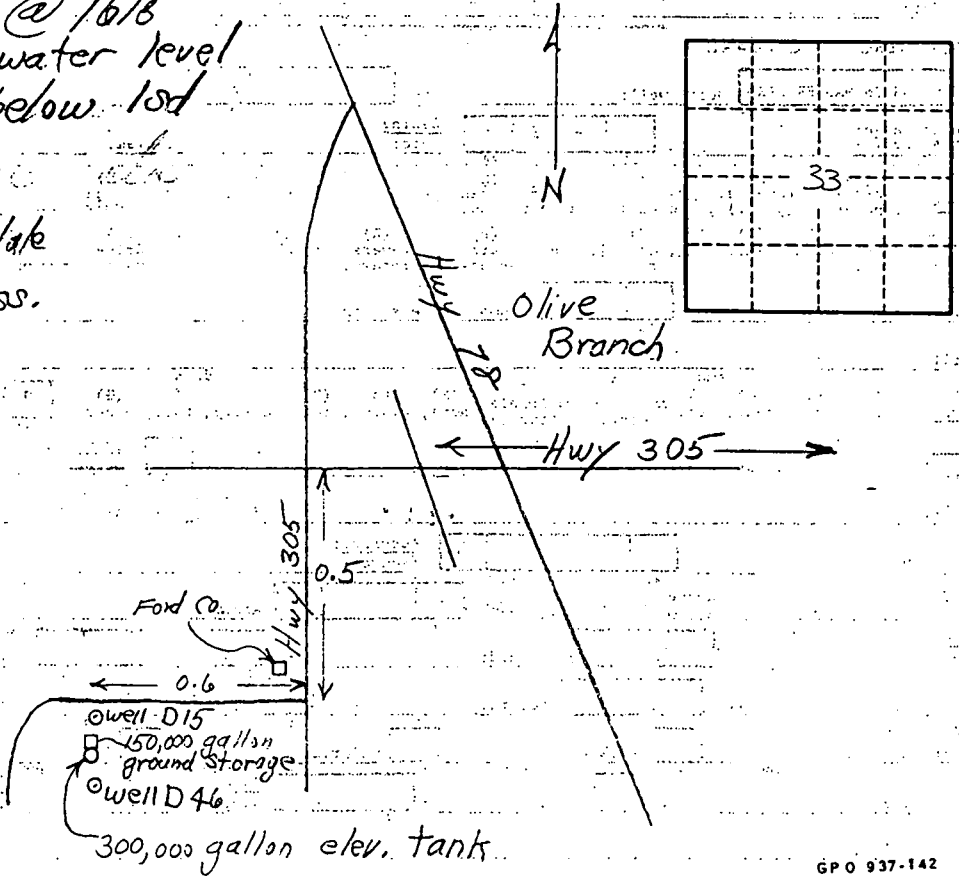 @ 1618
water level
below lsd
ss.
N
33
Hwy 78
Olive
Branch
Hwy 305
Hwy 305
0.5
Ford Co.
0.6
well D15
150,000 gallon
ground storage
well D46
300,000 gallon elev. tank
GPO 937-142